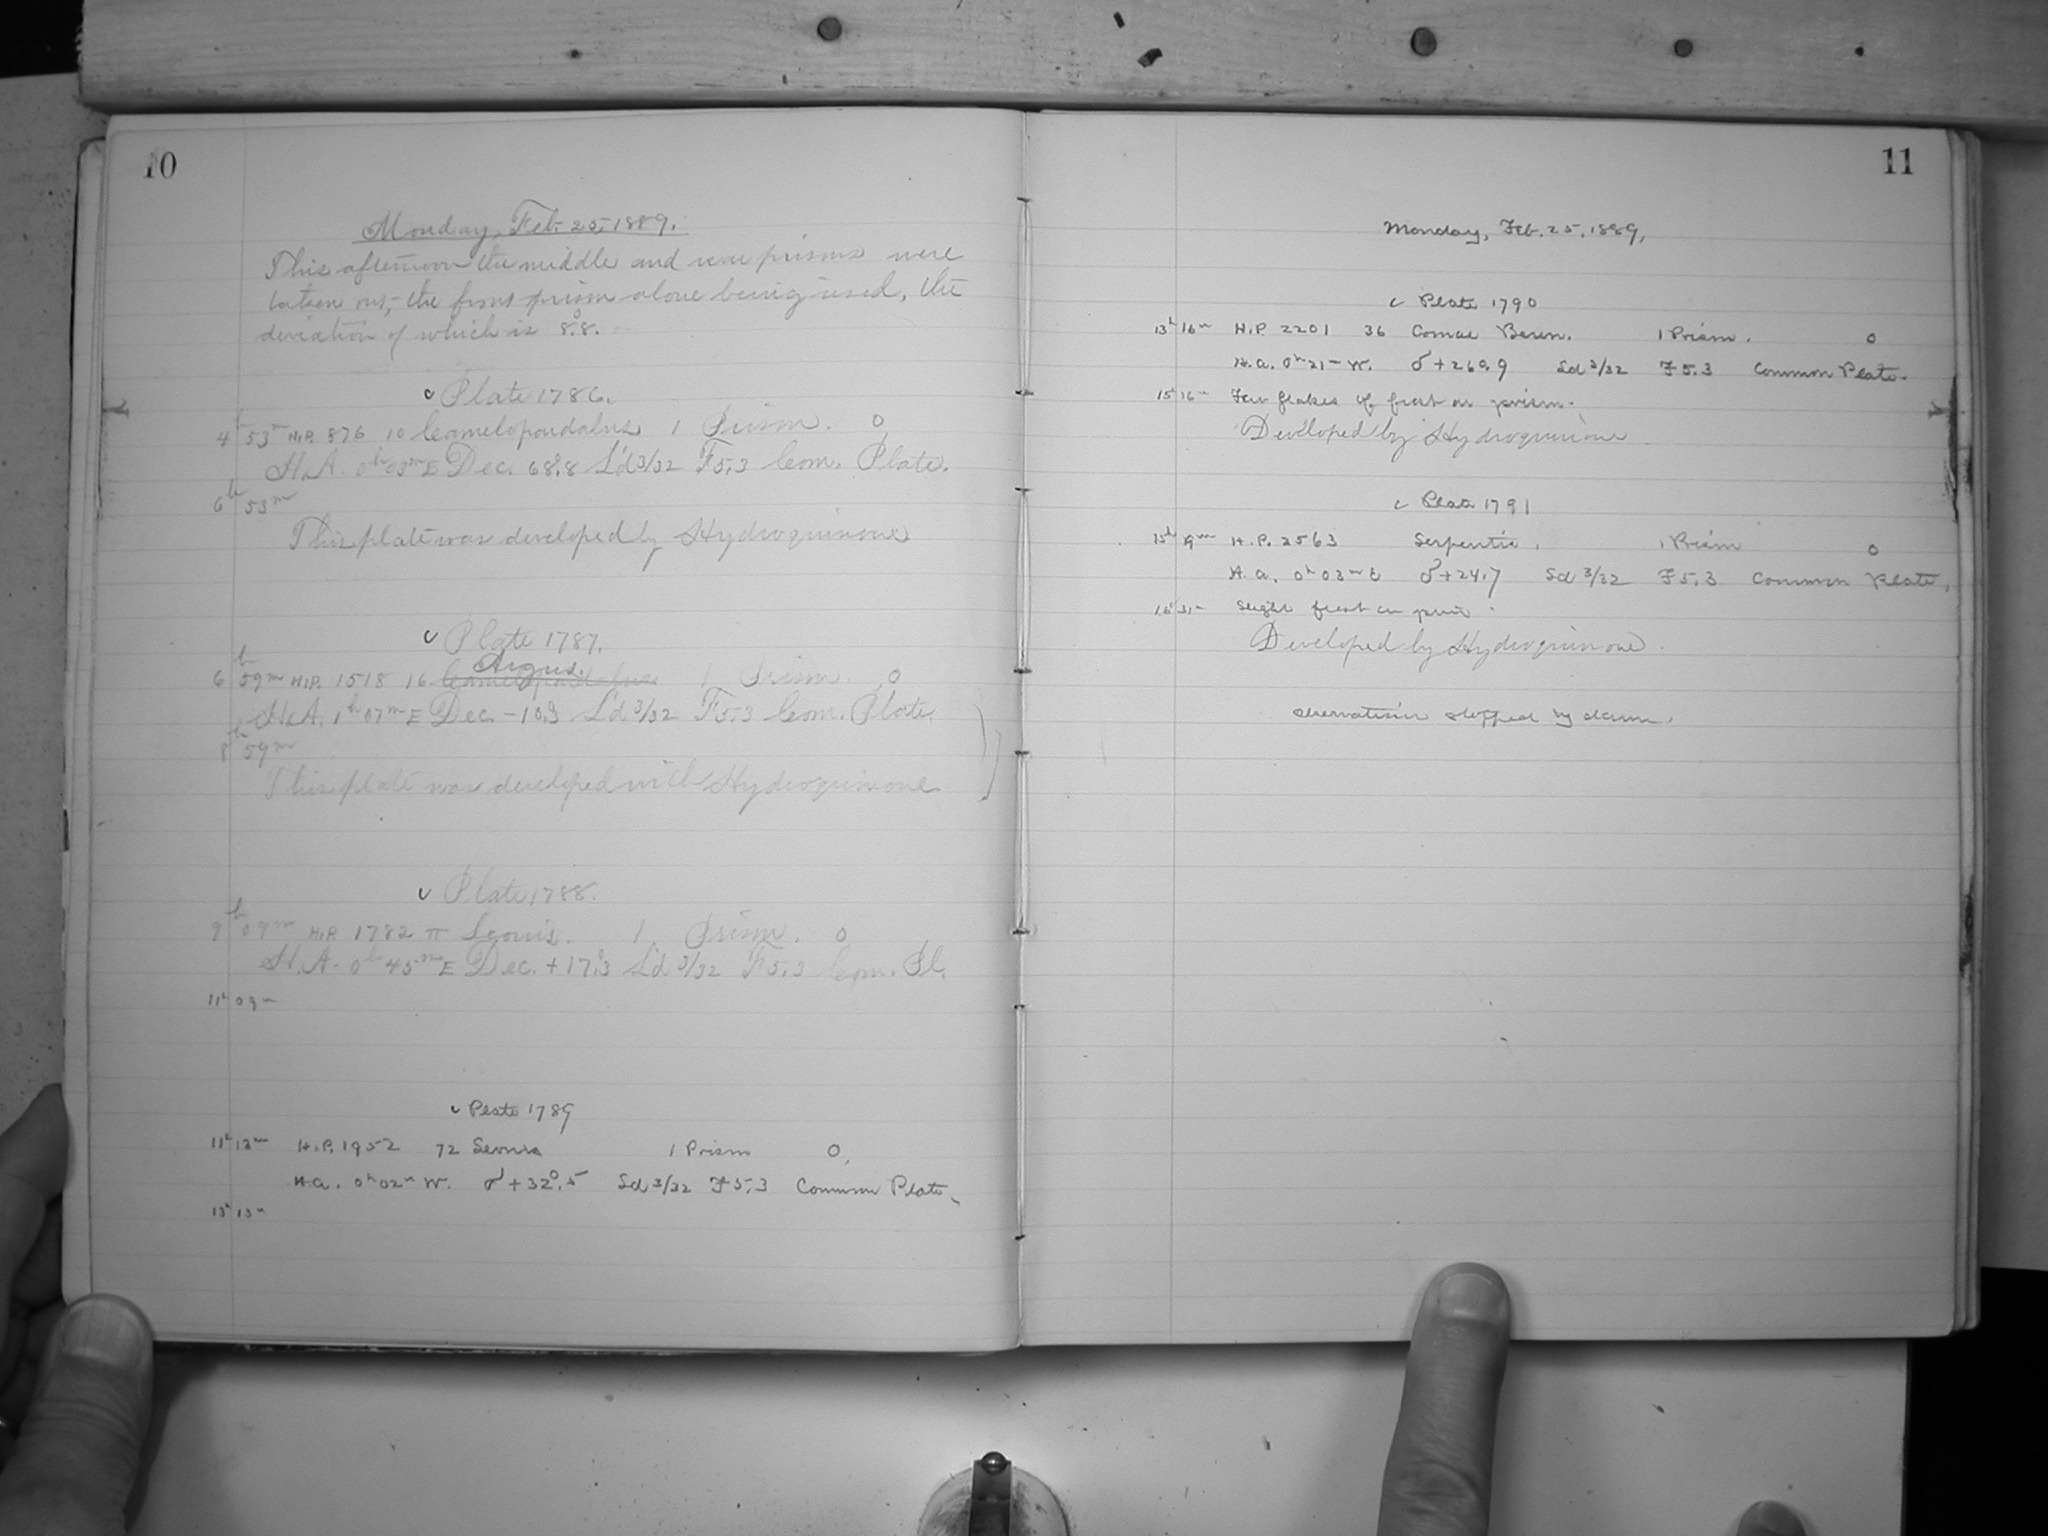 10
Monday, Feb. 25, 1889.
This afternoon the middle and rear prisms were
taken out, the front prism alone being used, the
deviation of which is 8°.8.
c Plate 1786.
4h 53m H.P. 876 10 Camelopardalus 1 Prism. 0
H.A. 0h 03m E Dec. 68°.8 L'd 3/32 F 5.3 Com. Plate.
6h 53m
This plate was developed by Hydroquinone
c Plate 1787.
Argus.
6h 59m H.P. 1518 16 Camelopardalus 1 Prism. 0
H.A. 1h 07m E Dec. -18°.9 L'd 3/32 F 5.3 Com. Plate.
8h 59m
This plate was developed with Hydroquinone
c Plate 1788.
9h 09m H.P. 1782 π Leonis. 1 Prism. 0
H.A. 0h 45m E Dec. +17°.3 L'd 3/32 F 5.3 Com. Pl.
11h 09m
c Plate 1789
11h 13m H.P. 1952 72 Leonis 1 Prism 0.
H.A. 0h 02m W. δ +32°.5 Sd 3/32 F 5.3 Common Plate.
13h 13m
11
Monday, Feb. 25, 1889,
c Plate 1790
13h 16m H.P. 2201 36 Comae Beren. 1 Prism. 0
H.A. 0h 21m W. δ +26°.9 Sd 3/32 F 5.3 Common Plate.
15h 16m Few flakes of frost on prism.
Developed by Hydroquinone
c Plate 1791
15h 19m H.P. 2563 Serpentis. 1 Prism 0
H.A. 0h 03m E δ +24.7 Sd 3/32 F 5.3 Common Plate,
16h 31m Slight frost on prism.
Developed by Hydroquinone.
Observations stopped by dawn.